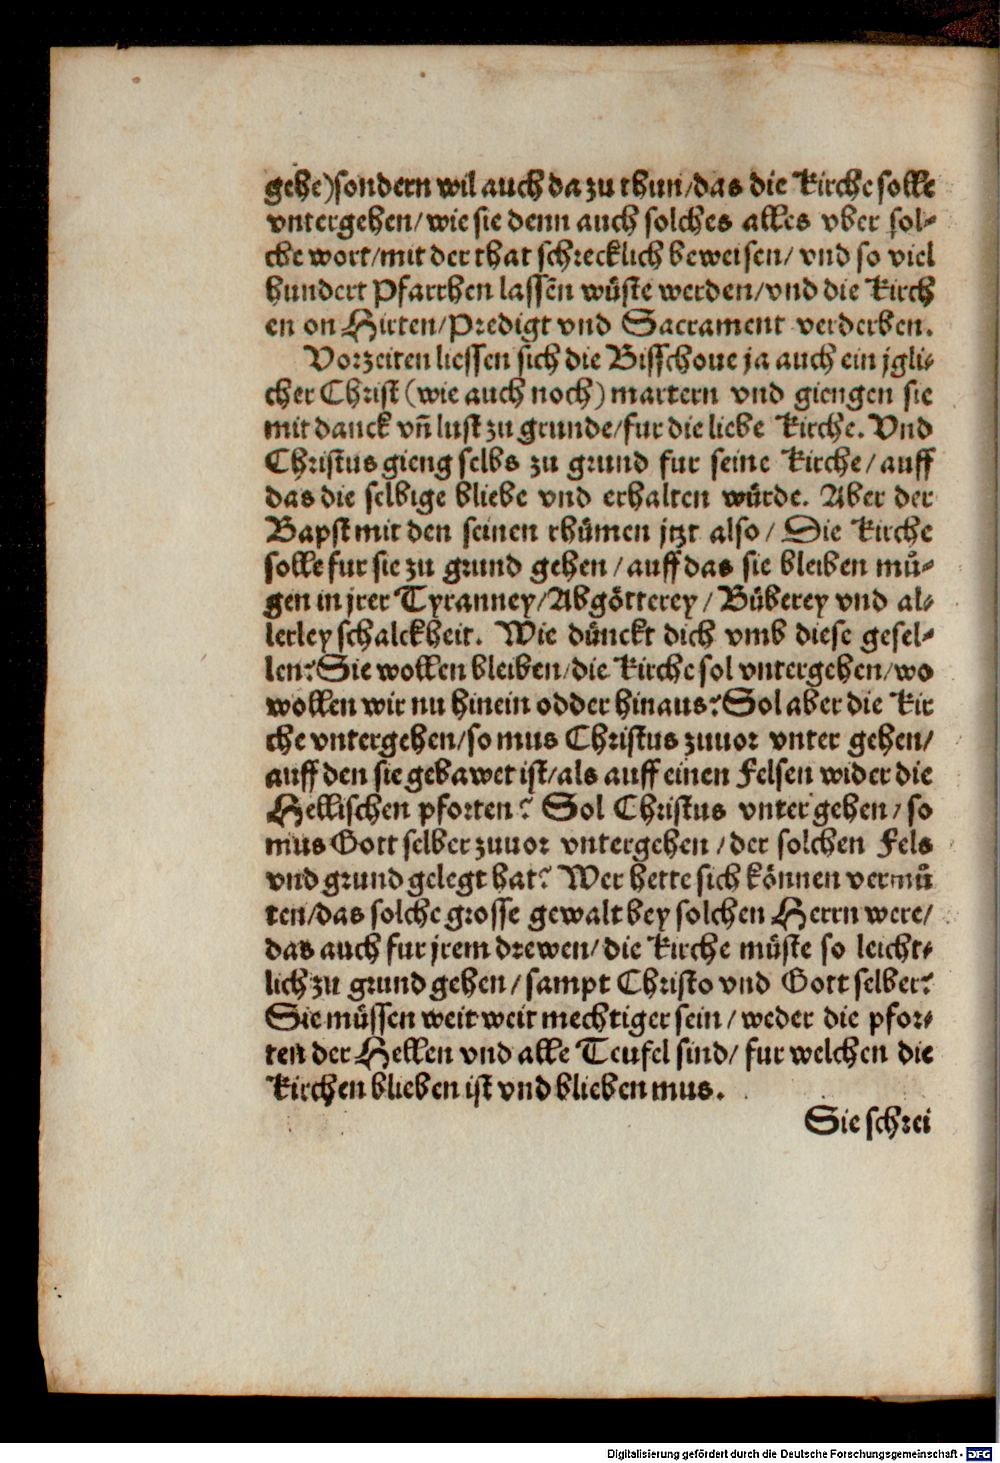 gehe)sondern wil auch da zu thun/das die Kirche solle
vntergehen/wie sie denn auch solches alles vber sol⸗
che wort/mit der that schrecklich beweisen/vnd so viel
hundert Pfarrhen lassen wüste werden/vnd die Kirch
en on Hirten/Predigt vnd Sacrament verderben.
Vorzeiten liessen sich die Bisschoue ja auch ein jgli⸗
cher Christ (wie auch noch) martern vnd giengen sie
mit danck vñ lust zu grunde/fur die liebe Kirche. Vnd
Christus gieng selbs zu grund fur seine Kirche/auff
das die selbige bliebe vnd erhalten würde. Aber der
Bapst mit den seinen rhümen jtzt also/Die Kirche
solle fur sie zu grund gehen/auff das sie bleiben mü⸗
gen in jrer Tyranney/Abgötterey/Büberey vnd al⸗
lerley schalckheit. Wie dünckt dich vmb diese gesel⸗
len? Sie wollen bleiben/die Kirche sol vntergehen/wo
wollen wir nu hinein odder hinaus? Sol aber die Kir
che vntergehen/so mus Christus zuuor vnter gehen/
auff den sie gebawet ist/als auff einen Felsen wider die
Hellischen pforten? Sol Christus vntergehen/so
mus Gott selber zuuor vntergehen/der solchen Fels
vnd grund gelegt hat? Wer hette sich können vermü
ten/das solche grosse gewalt bey solchen Herrn were/
das auch fur jrem drewen/die Kirche müste so leicht⸗
lich zu grund gehen/sampt Christo vnd Gott selber?
Sie müssen weit weit mechtiger sein/weder die pfor⸗
ten der Hellen vnd alle Teufel sind/fur welchen die
Kirchen blieben ist vnd blieben mus.
Sie schrei
Digitalisierung gefördert durch die Deutsche Forschungsgemeinschaft - DFG